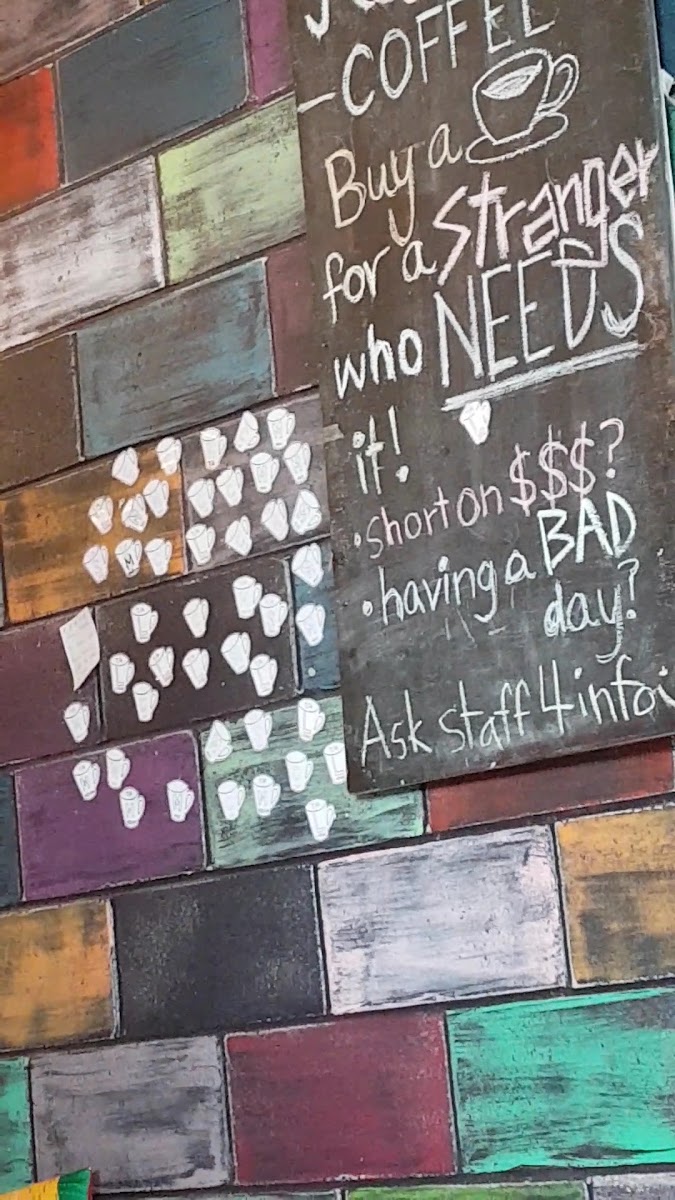 -COFFEE
Buy a
for a Stranger
who NEEDS
it!
• short on $$$?
• having a BAD
day?
Ask staff 4 info